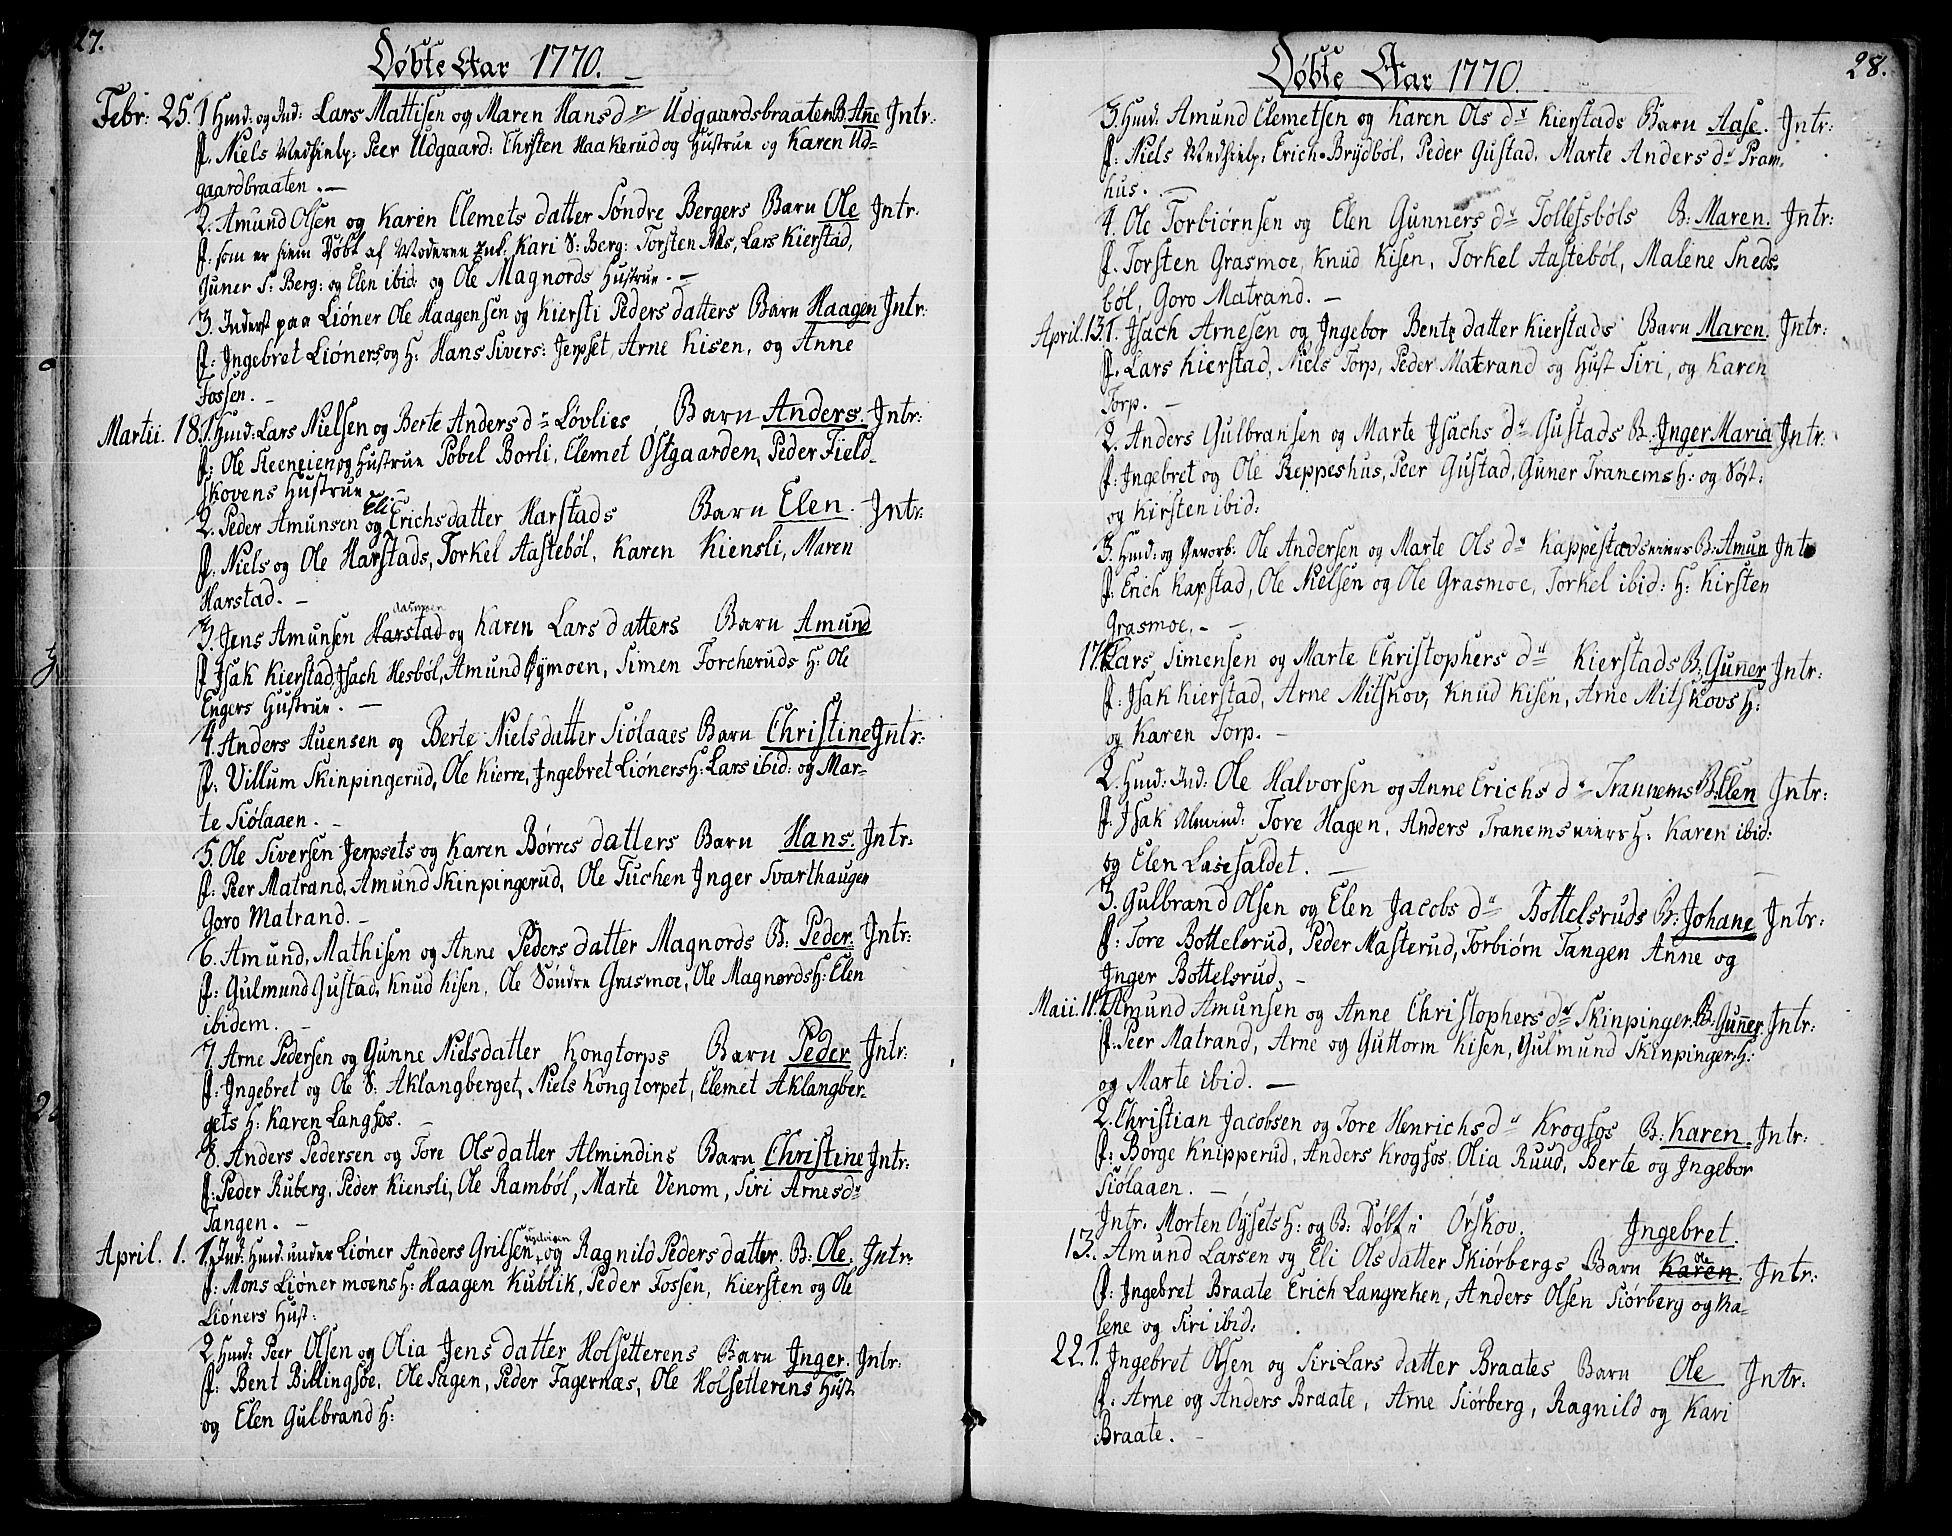 27.
Døbte Aar 1770.
Febr: 25. 1 Husd: og Ind: Lars Mattisen og Maren Hans dr Udgaardsbraaten B. Añe Intr:
f. Niels Medhielp: Peer Udgaard: Chrsten Haakerud og Hustrue og Karen Ud=
gaardbraaten. —
2. Amund Olsen og Karen Elemets datter Søndre Bergers Barn Ole Intr.
f. som er hiem Døbt af Moderen Enk. Kari S: Berg: Torsten Næs, Lars Kierstad,
Guner S: Berg: og Elen ibid: og Ole Magnords Hustrue. —
3. Inderst paa Liøner Ole Haagensen og Kiersti Peders datters Barn Haagen Intr:
f: Ingebret Liøners og H: Hans Sivers: Jerpset, Arne Kisen, og Anne
Fossen. —
Martii. 18. 1. Husd: Lars Nielsen og Berte Anders dr Løvlies Barn Anders. Intr:
f: Ole Steeneien og Hustrue Pobel Borli, Elemet Østgaarden, Peder Field=
skovens Hustrue
2. Peder Amunsen og Eli Erichsdatter Harstads Barn Elen. Intr:
f. Niels og Ole Harstads, Torkel Aastebøl, Karen Kiensli, Maren
Harstad. —
3. Jens Amunsen Harstad og Karen Lars datters Barn Amund
f Isak Kierstad, Isach Hesbøl, Amund Øymoen, Simen Torcheruds H: Ole
Engers Hustrue. —
4. Anders Auensen og Berte Nielsdatter Siølaaes Barn Christine Intr:
f: Villum Skinpingerud, Ole Kierre, Ingebret Liøners H: Lars ibid: og Mar=
te Siølaaen. —
5. Ole Siversen Jerpsets og Karen Børres datters Barn Hans. Intr:
f: Peer Matrand, Amund Skinpingerud, Ole Tuchen Inger Svarthaugen
Goro Matrand. —
6. Amund Mathisen og Anne Peders datter Magnords B: Peder. Intr:
f: Gulmund Gustad, Knud Kisen, Ole Søndre Grasmoe, Ole Magnords H: Elen
ibidem. —
7. Arne Pedersen og Gunne Nielsdatter Kongtorps Barn Peder Intr:
f: Ingebret og Ole S: Aklangberget, Niels Kongtorpet, Elemet Aklangber=
gets H: Karen Langfos. —
8. Anders Pedersen og Tore Olsdatter Almindins Barn Christine Intr:
f: Peder Ruberg, Peder Kiensli, Ole Rambøl, Marte Venom, Siri Arnesdr
Tangen. —
April. 1. 1. Ind: Husd: under Liøner Anders Grilsen og Ragnild Peders datter. B: Ole. Intr
f: Mons Liøner moens H: Haagen Kublik, Peder Fossen, Kiersten og Ole
Liøners Hust:
2. Husd: Peer Olsen og Olia Jens datter Holsetterens Barn Inger. Intr:
f: Bent Billingsøe, Ole Sagen, Peder Fagernæs, Ole Holsetterens Hust
og Elen Gulbrand H:
28.
Døbte Aar 1770.
3. Husd: Amund Elemetsen og Karen Ols dr Kierstads Barn Aase. Intr:
f: Niels Medhielp: Erich Brydbøl, Peder Gustad. Marte Anders dr Pram=
hus. —
4. Ole Torbiørnsen og Elen Gunners dr Tollefsbøls B: Maren. Intr:
f. Torsten Grasmoe, Knud Kisen, Torkel Aastebøl, Malene Sneds=
bøl, Goro Matrand. —
April. 13. 1. Isach Arnesen og Ingebor Bents datter Kierstads Barn Maren. Intr:
f. Lars Kierstad, Niels Torp, Peder Matrand og Hust Siri, og Karen
Torp. —
2. Anders Gulbransen og Marte Isachs dr Gustads B. Inger Maria Intr:
f: Ingebret og Ole Reppeshus, Peer Gustad, Guner Tranems H: og Søst:
og Kirsten ibid:
3. Husd: og Gevorb: Ole Andersen og Marte Ols dr Kappestadseiers B: Amun Intr
f: Erich Kapstad, Ole Nielsen og Ole Grasmoe, Torkel ibid: H: Kirsten
Grasmoe. —
17. 1. Lars Simensen og Marte Christophers dr Kierstads B: Guner Intr:
f: Isak Kierstad, Arne Mitskov, Knud Kisen, Arne Mitskovs H:
og Karen Torp. —
2. Husd: Ind: Ole Halvorsen og Anne Erichs dr Trannems B: Elen Intr:
f. Isak Almind: Tore Hagen, Anders Tranemseiers H: Karen ibid:
og Elen Lasesaldet. —
3. Gulbrand Olsen og Elen Jacobs dr Bottelsruds B: Johane Intr:
f: Tore Bottelsrud, Peder Masterud, Torbiørn Tangen Anne og
Inger Bottelsrud. —
Maii. 11. 1. Amund Amunsen og Anne Christophers dr Skinpinger: B: Guñer Intr:
f: Peer Matrand, Arne og Guttorm Kisen, Gulmund Skinpinger: H:
og Marte ibid. —
2. Christian Jacobsen og Tore Henrichs dr Krogfos B: Karen. Intr:
f: Børge Knipperud, Anders Krogfos, Olia Ruud, Berte og Ingebor
Siølaaen. —
Intr. Morten Øysets H: og B: Døbt i Ørskov. Ingebret.
13. Amund Larsen og Eli Ols datter Skiørbergs Barn Karen Ole. Intr:
f: Ingebret Braate Erich Langreken, Anders Olsen Siørberg og Ma=
lene og Siri ibid:
22. 1. Ingebret Olsen og Siri Lars datter Braates Barn Ole Intr:
f: Arne og Anders Braate, Arne Siørberg, Ragnild og Kari
Braate. —